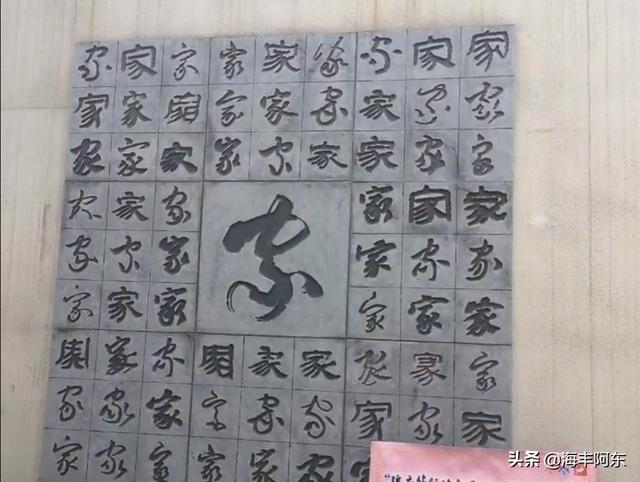 家家家家家家家家家
家家家家家家家家家
家家家家家家家家家
家家家家家家
家家家家家家家
家家家家家家
家家家家家家家家家
家家家家家家家家家
家家家家家家家家
头条 @海丰阿东